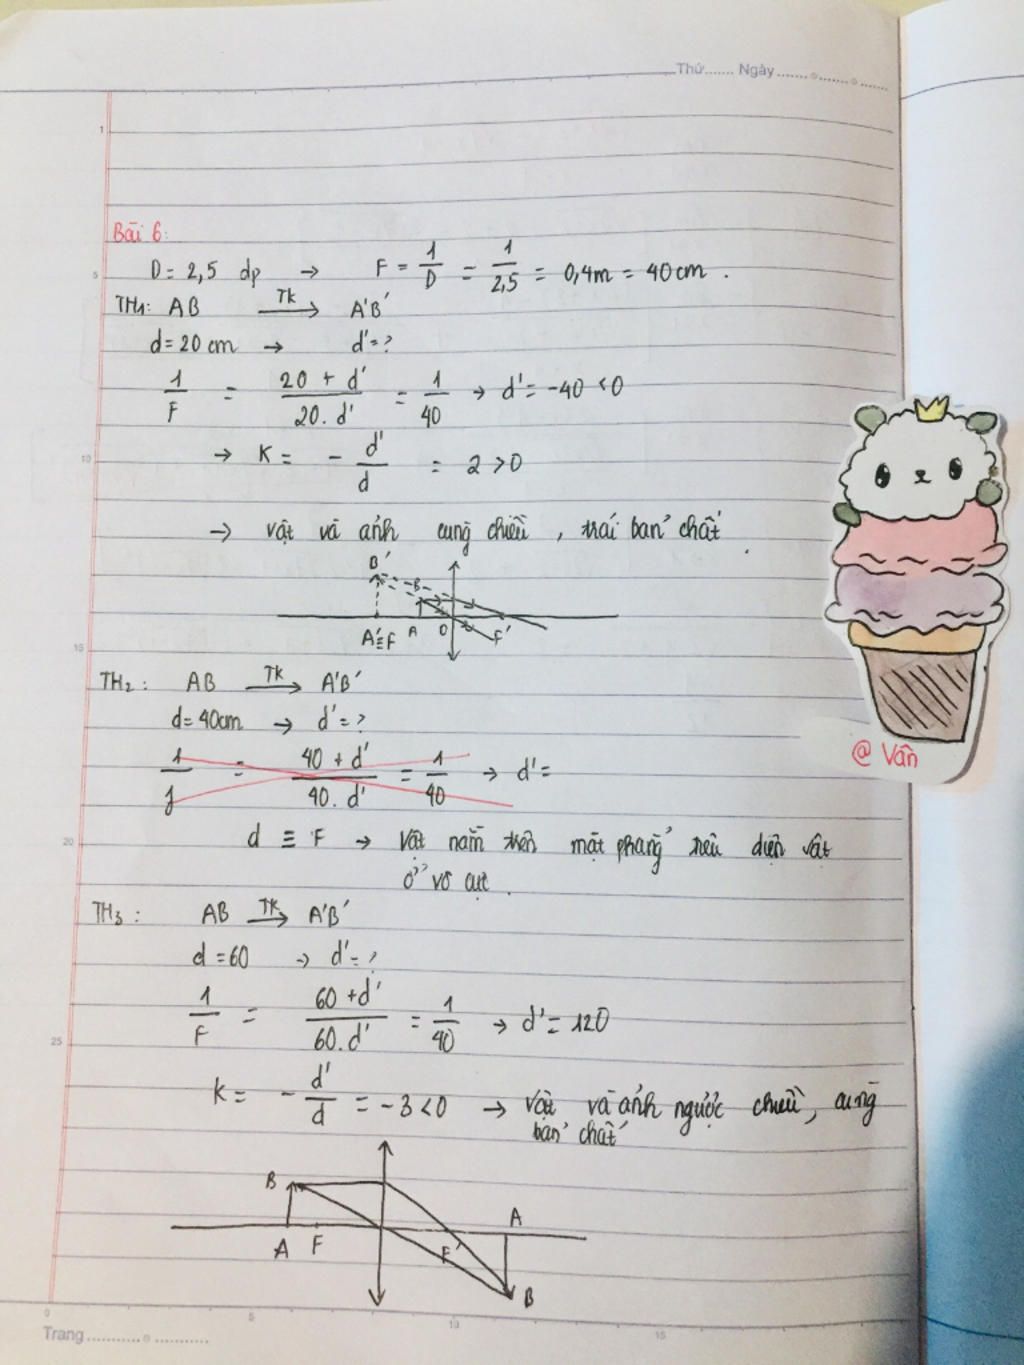 Thứ....... Ngày........o........o.......
1
Bài 6:
5
D = 2,5 dp → F = 1/D = 1/2,5 = 0,4m = 40cm .
TH1: AB Tk→ A'B'
d = 20 cm → d' = ?
1/F = 20 + d'/20. d' = 1/40 → d' = -40 < 0
10
→ K = - d'/d = 2 > 0
→ vật và ảnh cùng chiều , trái bản chất .
B' B
A'≡F A O F'
15
TH2 : AB Tk→ A'B'
d = 40cm → d' = ?
@ Vân
1/f = 40 + d'/40. d' = 1/40 → d' =
20
d ≡ F → Vật nằm trên mặt phẳng tiêu diện vật
ở vô cực .
TH3 : AB Tk→ A'B'
d = 60 → d' = ?
1/F = 60 + d'/60. d' = 1/40 → d' = 120
25
K = - d'/d = -3 < 0 → Vật và ảnh ngược chiều, cùng
bản chất
B A
A F F'
B
0 5 10 15
Trang...........o...........